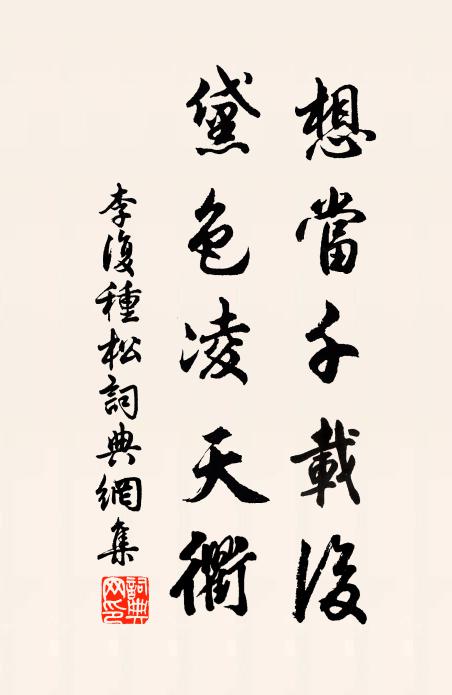 想當千載後
黛色凌天衢
李復種松詞典網集
詞典網印